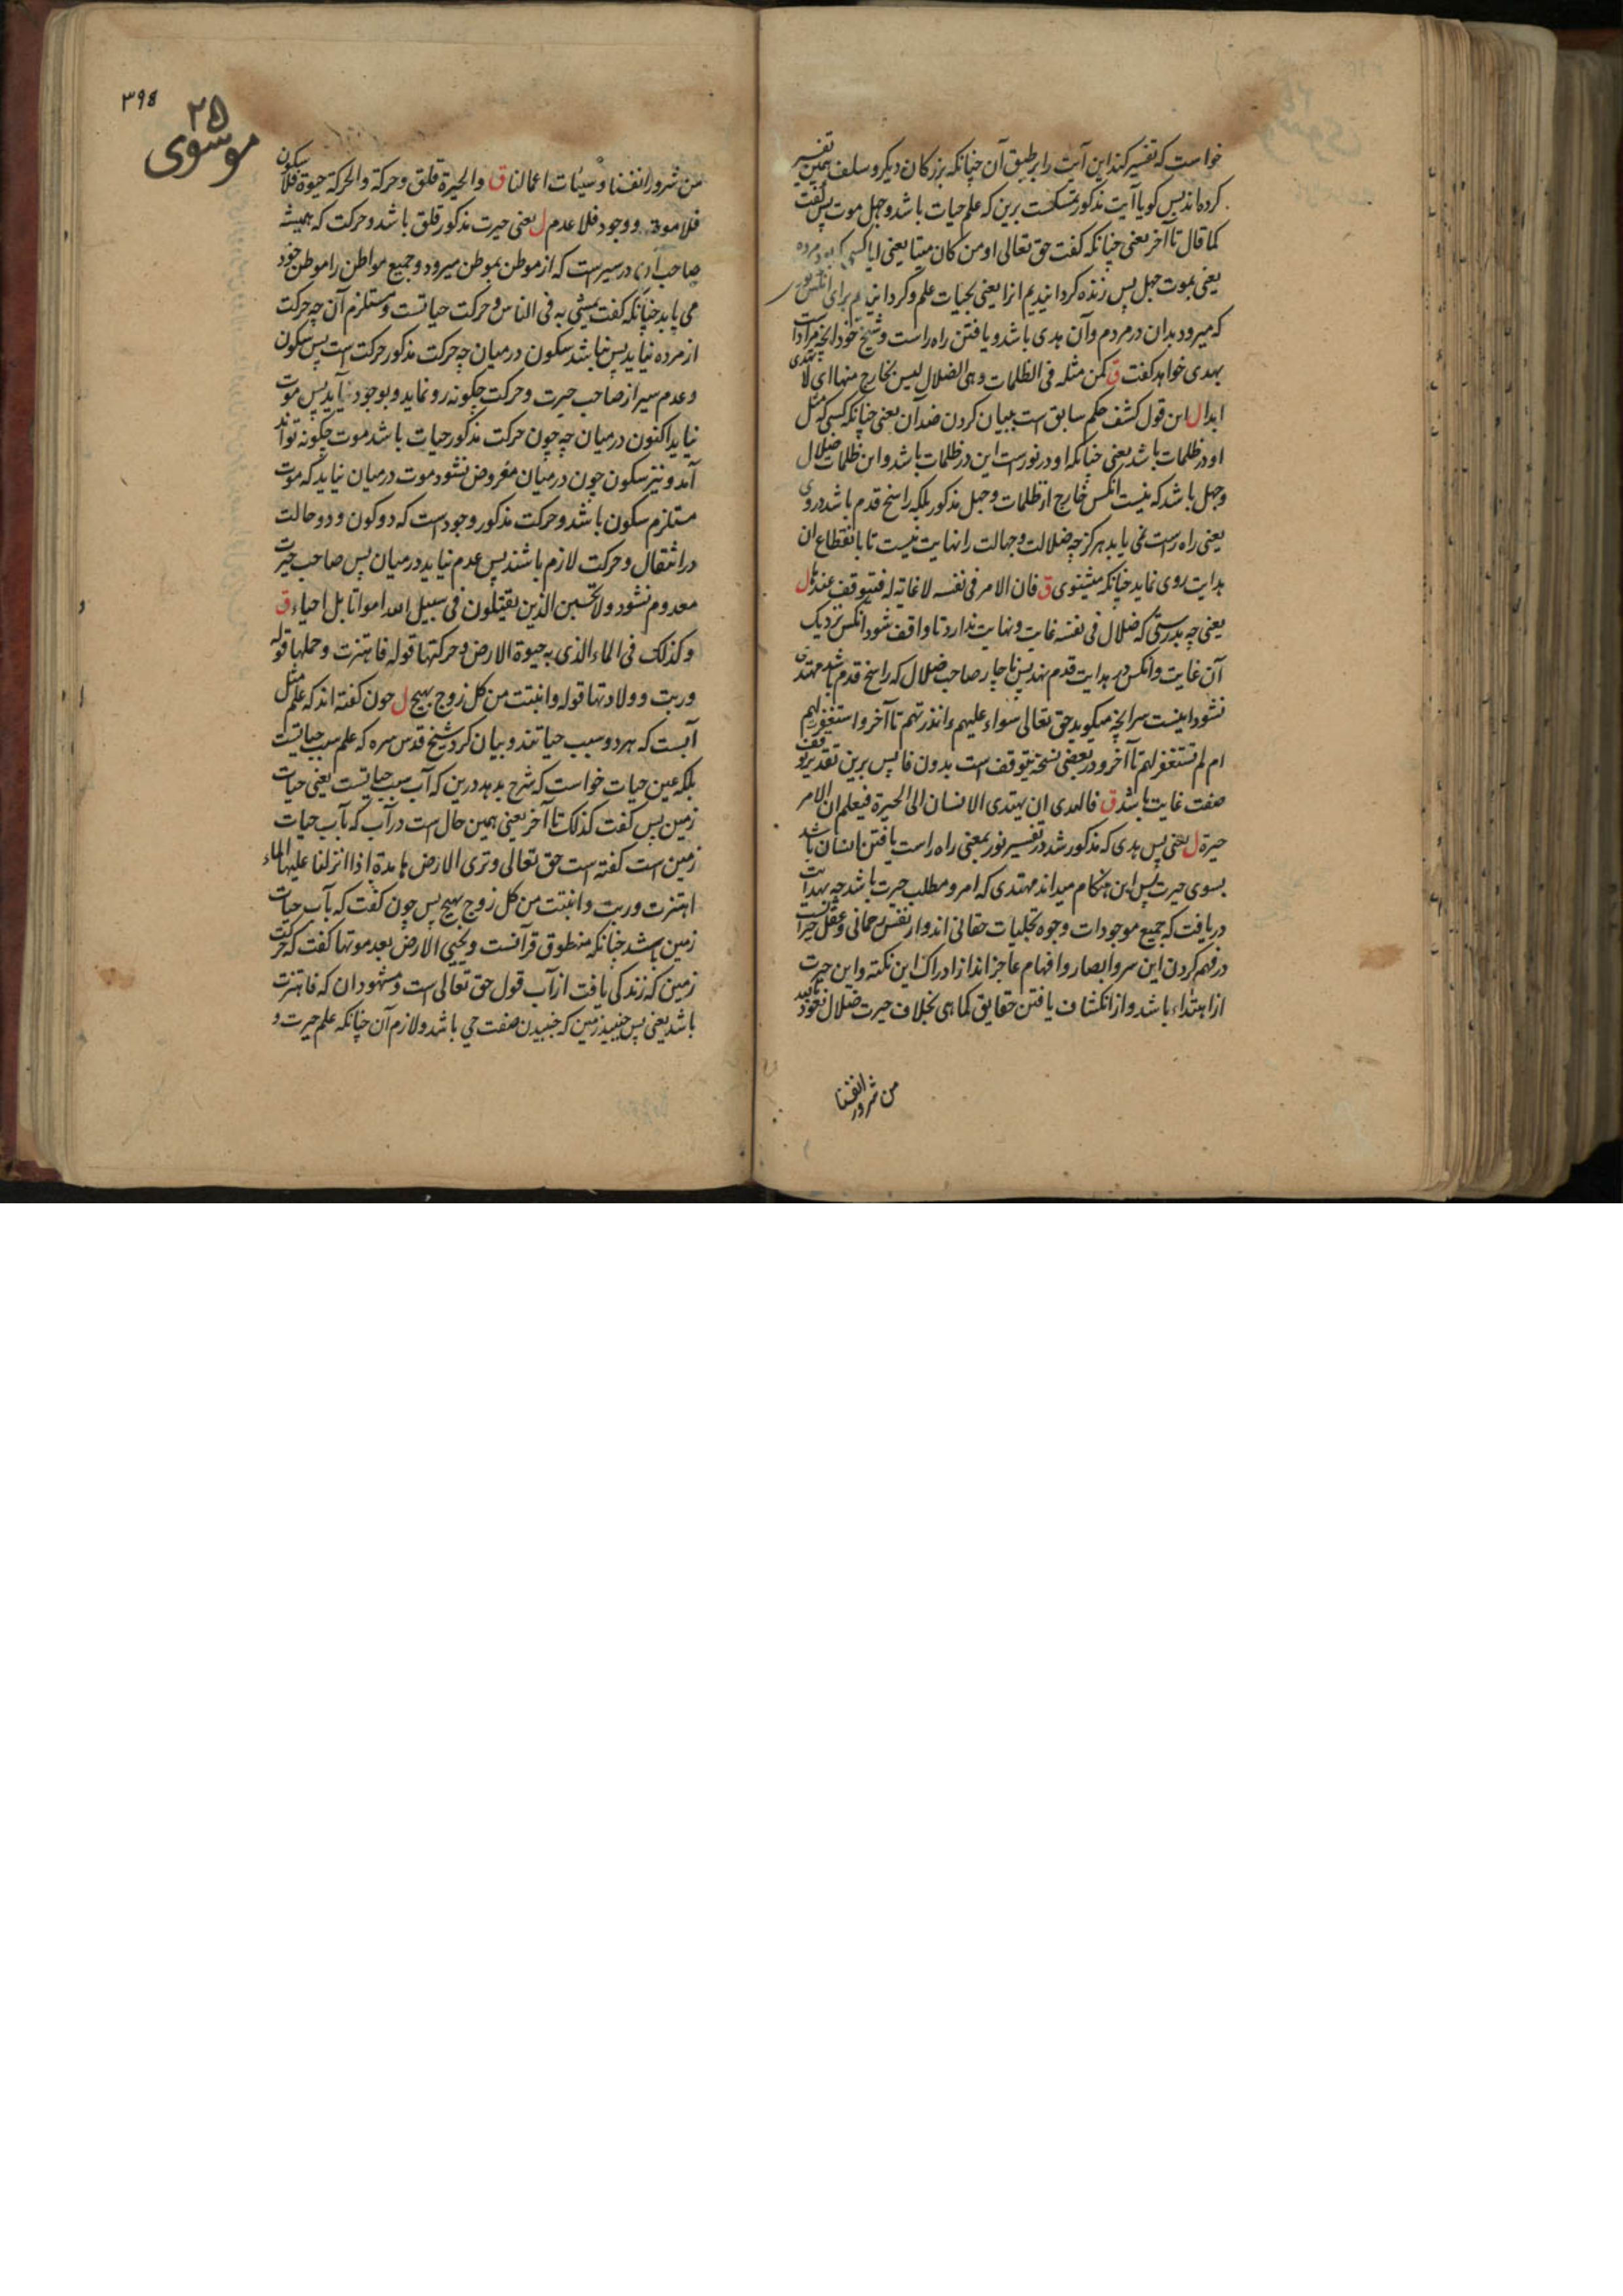 خواست که تفسیر کند این آیت را بر طبق آن چنانکه بزرکان دیکر و سلف همین تفسیر
کرده‌اند پس کویا آیت مذکور تمسکست برین که علم حیات باشد و جهل موت پس کفت
کما قال تا آخر یعنی چنانکه کفت حق تعالی او من کان میتا یعنی ایا کسی که بود مرده
یعنی بموت جهل پس زنده کردانیدیم انرا یعنی بحیات علم و کردانیدیم برای انکس نور
که میرود بدان در مردم و آن هدی باشد و یافتن راه راست و شیخ خود انچه مراد است
بهدی خواهد کفت ق کمن مثله فی الظلمات و هی الضلال لیس بخارج منها ای لا یهتدی
ابدا ل این قول کشف حکم سابق است ببیان کردن ضد آن یعنی چنانکه کسی که مثل
او در ظلمات باشد یعنی چنانکه او در نور است این در ظلمات باشد و این ظلمات ضلال
و جهل باشد که نیست انکس خارج از ظلمات و جهل مذکور بلکه راسخ قدم باشد در وی
یعنی راه راست نمی یابد هرکز چه ضلالت و جهالت را نهایت نیست تا بانقطاع ان
هدایت روی نماید چنانکه میشنوی ق فان الامر فی نفسه لا غایة له فیتوقف عندها ل
یعنی چه بدرستی که ضلال فی نفسه غایت و نهایت ندارد تا واقف شود انکس نزدیک
آن غایت و انکس در هدایت قدم نهد پس ناچار صاحب ضلال که راسخ قدم باشد مهتدی
نشود اینست سر انچه میکوید حق تعالی سواء علیهم ءانذرتهم تا آخر و استغفر لهم
ام لم تستغفر لهم تا آخر و در بعضی نسخه یتوقف است بدون فا پس برین تقدیر توقف
صفت غایت باشد ق فالهدی ان یهتدی الانسان الی الحیرة فیعلم ان الامر
حیرة ل یعنی پس هدی که مذکور شد در تفسیر نور بمعنی راه راست یافتن انسان باشد
بسوی حیرت پس این هنکام میداند مهتدی که امر و مطلب حیرت باشد چه بهدایت
دریافت که جمیع موجودات وجوه تجلیات حقانی اند و از نفس رحمانی و عقل حیرانست
در فهم کردن این سر و ابصار و افهام عاجز اند از ادراک این نکته و این حیرت
از اهتداء باشد و از انکشاف یافتن حقایق کما هی بخلاف حیرت ضلال نعوذ بالله
من شرور انفسنا
۳۹۸
۲۵
موسوی
من شرور انفسنا و سیئات اعمالنا ق والحیرة قلق و حرکة والحرکة حیوة فلا سکون
فلا موت و وجود فلا عدم ل یعنی حیرت مذکور قلق باشد و حرکت که همیشه
صاحب آن در سیر است که از موطن بموطن میرود و جمیع مواطن را موطن خود
می یابد چنانکه کفت یمشی به فی الناس و حرکت حیاتست و مستلزم آن چه حرکت
از مرده نیاید پس نباشد سکون در میان چه حرکت مذکور حرکت است پس سکون
و عدم سیر از صاحب حیرت و حرکت چکونه رو نماید و بوجود نیاید پس موت
نیاید اکنون در میان چه چون حرکت مذکور حیات باشد موت چکونه تواند
آمد و نیز سکون چون در میان مفروض نشود موت در میان نیاید که موت
مستلزم سکون باشد و حرکت مذکور وجود است که دو کون و دو حالت
در انتقال و حرکت لازم باشند پس عدم نیاید در میان پس صاحب حیرت
معدوم نشود و لا تحسبن الذین یقتلون فی سبیل الله امواتا بل احیاء ق
و کذلک فی الماء الذی به حیوة الارض و حرکتها قوله فاهتزت و حملها قوله
و ربت و ولادتها قوله و انبتت من کل زوج بهیج ل چون کفته اند که علم مثل
آبست که هر دو سبب حیاتند و بیان کرد شیخ قدس سره که علم سبب حیاتست
بلکه عین حیات خواست که شرح بدهد درین که آب سبب حیاتست یعنی حیات
زمین پس کفت کذلک تا آخر یعنی همین حال است در آب که بآب حیات
زمین است کفته است حق تعالی و تری الارض هامدة اذا انزلنا علیها الماء
اهتزت و ربت و انبتت من کل زوج بهیج پس چون کفت که بآب حیات
زمین باشد چنانکه منطوق قرآنست و یحیی الارض بعد موتها کفت که حرکت
زمین که زندکی یافت از آب قول حق تعالی است و مشهود ان که فاهتزت
باشد یعنی پس جنبید زمین که جنبیدن صفت حی باشد و لازم آن چنانکه علم حیرت و